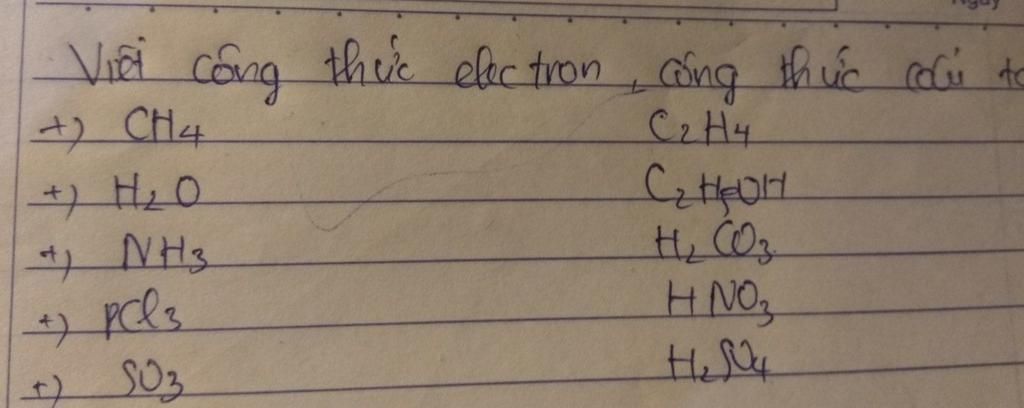 Viết công thức electron, công thức cấu
+) CH4 C2H4
+) H2O C2H5OH
+) NH3 H2CO3
+) PCl3 HNO3
+) SO3 H2SO4